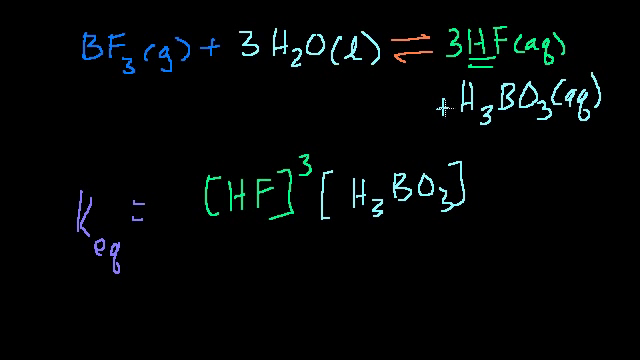 BF₃(g) + 3H₂O(l) ⇌ 3HF(aq)
+ H₃BO₃(aq)
K_eq = [HF]³ [H₃BO₃]